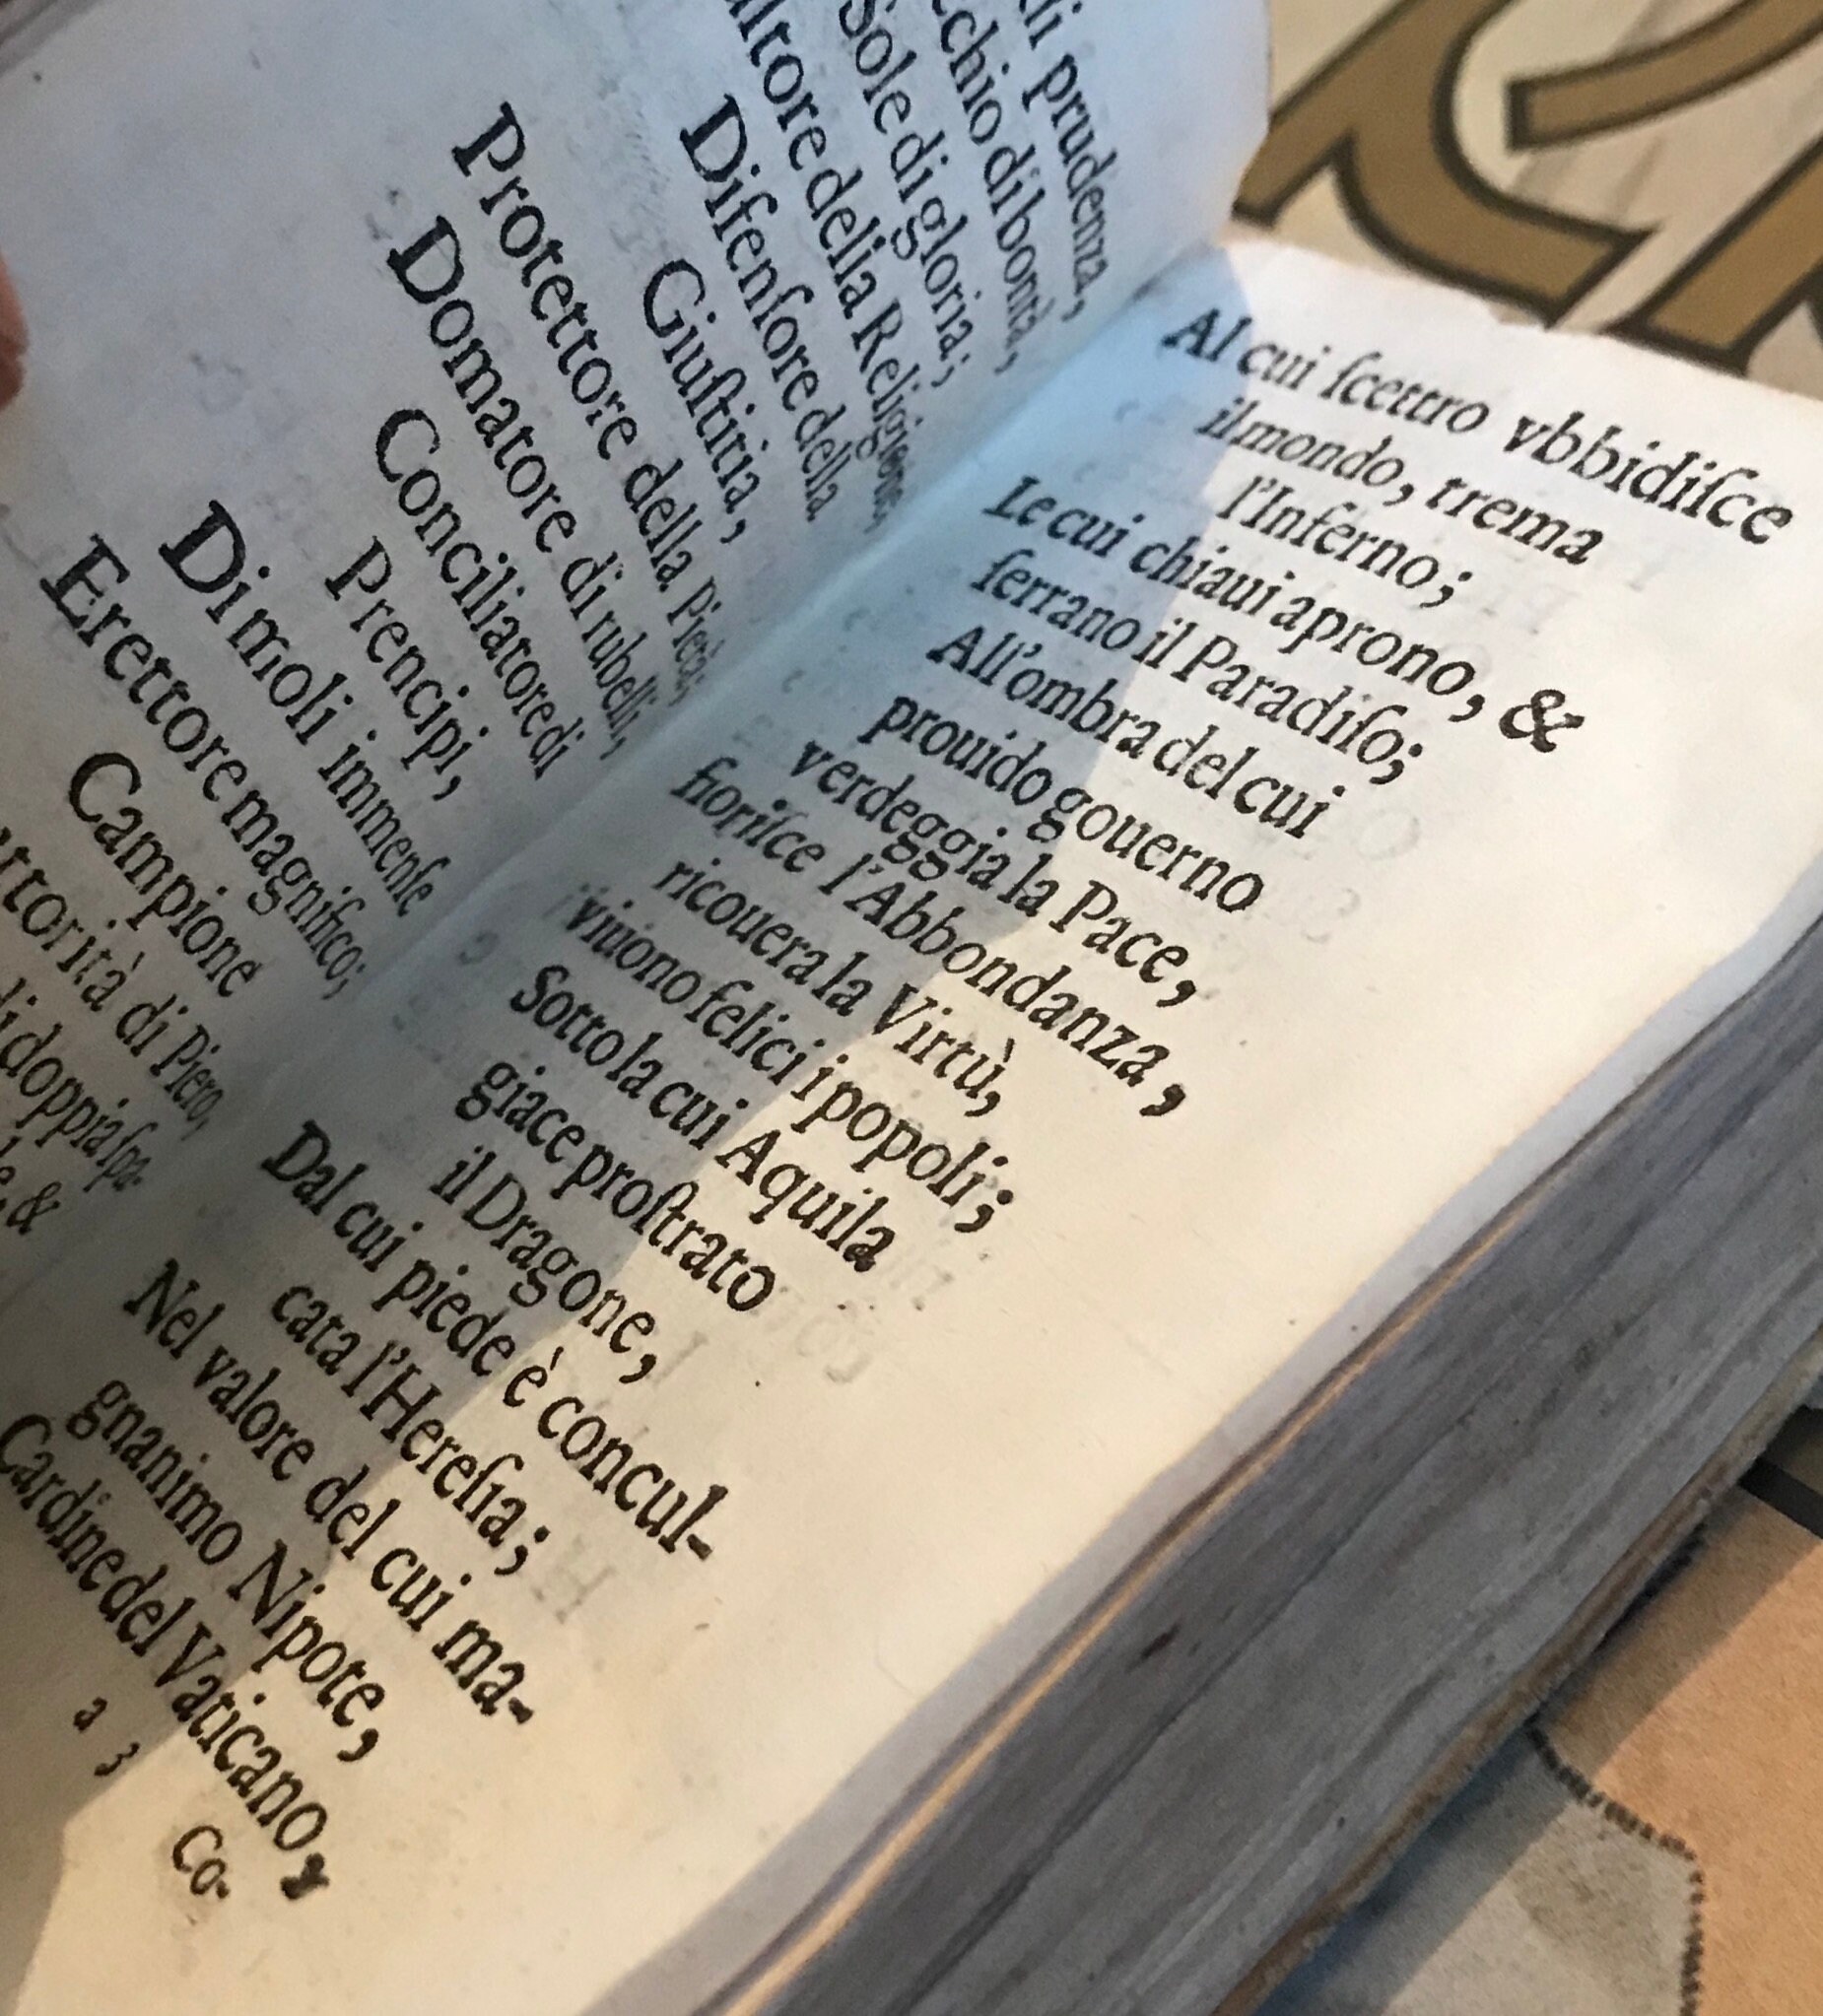 di prudenza,
di bontà,
Sole di gloria;
della Religione,
Difenſore della
Giuſtitia,
Protettore della Pietà,
Domatore di rubelli,
Conciliatore di
Prencipi,
Di moli immenſe
Erettore magnifico;
Campione
di Piero,
di doppia ſpa-
&
Al cui ſcettro vbbidiſce
il mondo, trema
l'Inferno;
Le cui chiaui aprono, &
ſerrano il Paradiſo;
All'ombra del cui
prouido gouerno
verdeggia la Pace,
fioriſce l'Abbondanza,
ricouera la Virtù,
viuono felici i popoli;
Sotto la cui Aquila
giace proſtrato
il Dragone,
Dal cui piede è concul-
cata l'Hereſia;
Nel valore del cui ma-
gnanimo Nipote,
Cardine del Vaticano,
a 3
Co-